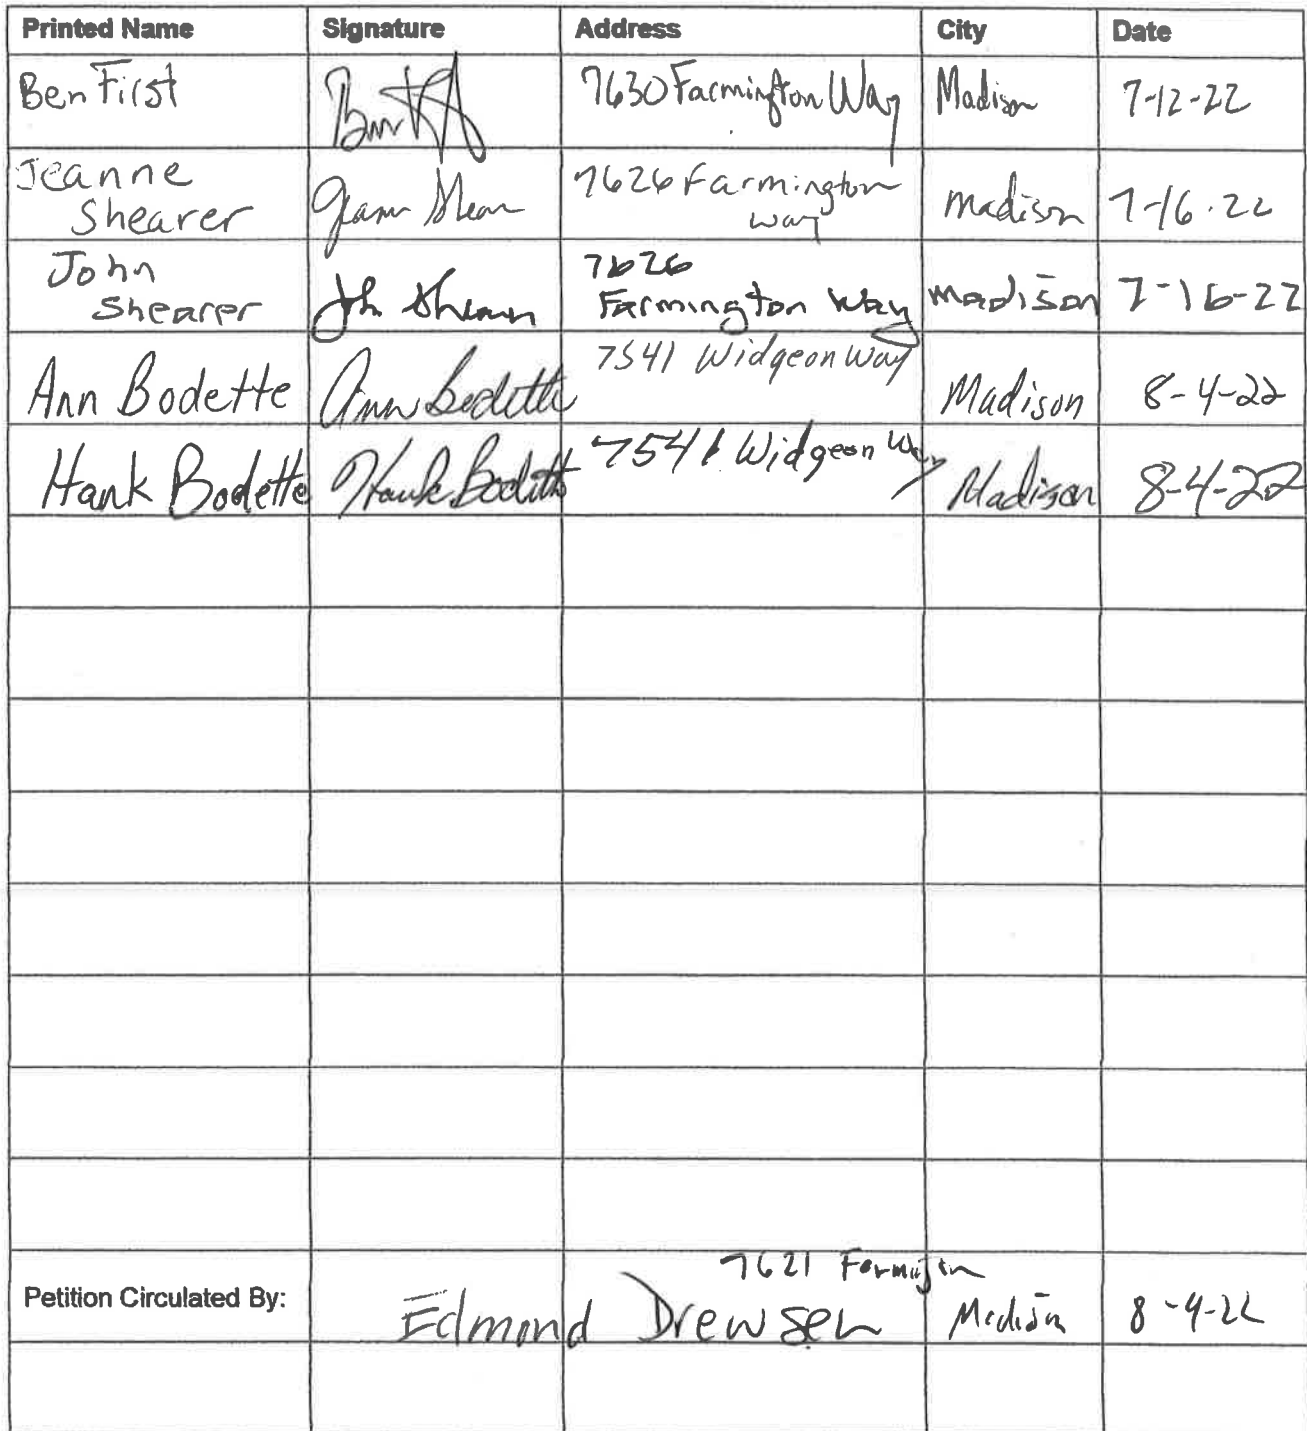 Printed Name Signature Address City Date
Ben First 7630 Farmington Way Madison 7-12-22
Jeanne
Shearer 7626 Farmington
way madison 7-16-22
John
Shearer 7626
Farmington Way madison 7-16-22
Ann Bodette Ann Bodette 7541 Widgeon Way Madison 8-4-22
Hank Bodette Hank Bodette 7541 Widgeon Way Madison 8-4-22
Petition Circulated By: Edmond Drewsen 7621 Madison 8-4-22